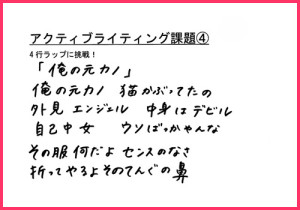 アクティブライティング課題④
4行ラップに挑戦！
「俺の元カノ」
俺の元カノ 猫かぶってたの
外見 エンジェル 中身は デビル
自己中女 ウソばっかやんな
その服何だよ センスのなさ
折ってやるよそのてんぐの鼻